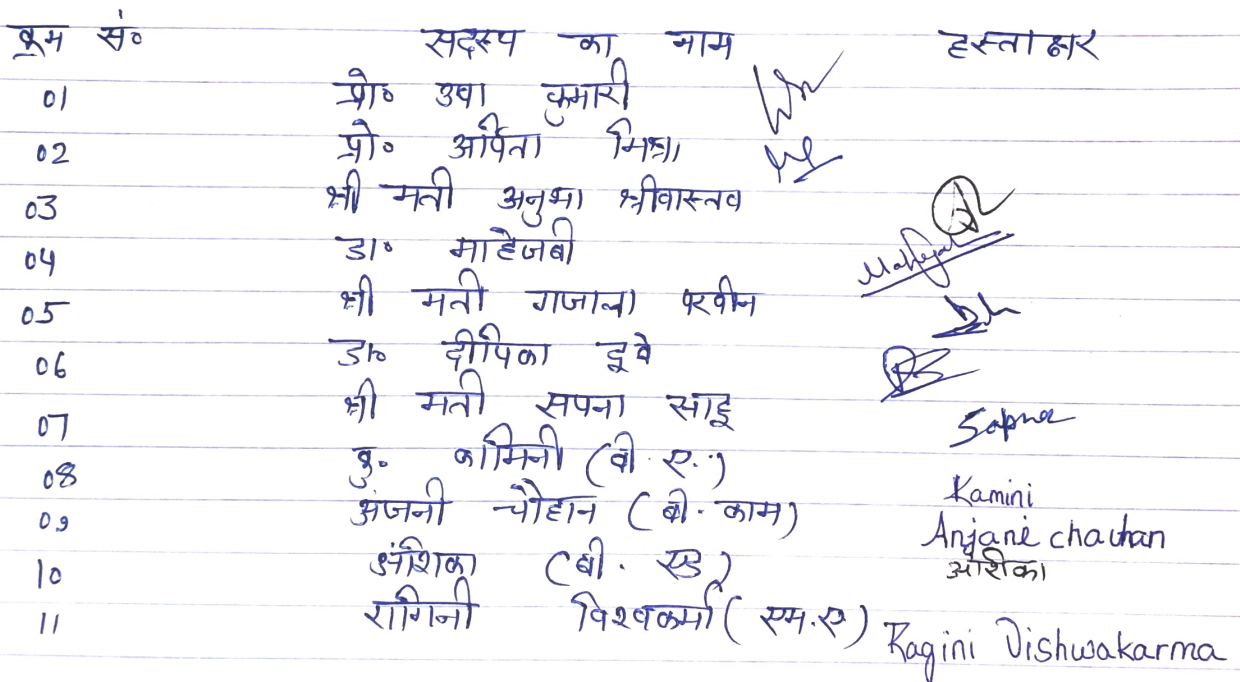 क्रम सं० सदस्य का नाम हस्ताक्षर
01 प्रो० उषा कुमारी
02 प्रो० अर्पिता मिश्रा
03 श्री मती अनुभा श्रीवास्तव
04 डा० माहेजबी
05 श्री मती गजाला परवीन
06 डा० दीपिका दूवे
07 श्री मती सपना साहू Sapna
08 कु. कामिनी (बी. ए.) Kamini
09 अंजनी चौहान (बी. काम) Anjane chauhan
10 अंशिका (बी. एड) अंशिका
11 रागिनी विश्वकर्मा (एम.ए) Ragini Vishwakarma